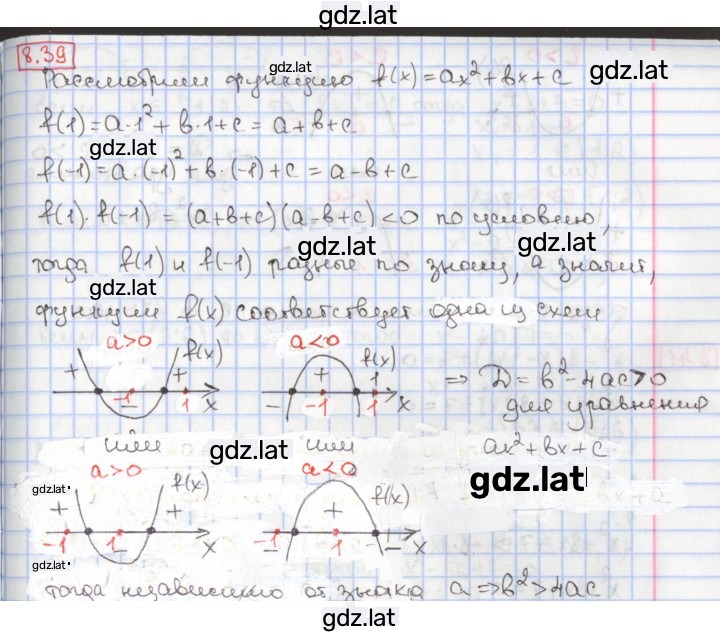 gdz.lat
8.39
Рассмотрим функцию f(x) = ax² + bx + c
gdz.lat
f(1) = a·1² + b·1 + c = a + b + c
gdz.lat
f(-1) = a·(-1)² + b·(-1) + c = a - b + c
f(1)·f(-1) = (a+b+c)(a-b+c) < 0 по условию,
gdz.lat gdz.lat
тогда f(1) и f(-1) разные по знаку, а значит,
gdz.lat
функции f(x) соответствует одна из схем
gdz.lat gdz.lat
a>0 f(x) a<0 f(x)
+ + + 1 ⇒ D = b² - 4ac > 0
-1 − 1 x − -1 1 x для уравнения
или или ax² + bx + c
gdz.lat
a>0 a<0 gdz.lat
gdz.lat f(x) f(x)
+ + +
-1 1 − x -1 − 1 − x
gdz.lat gdz.lat gdz.lat
тогда независимо от знака a ⇒ b² > 4ac
gdz.lat